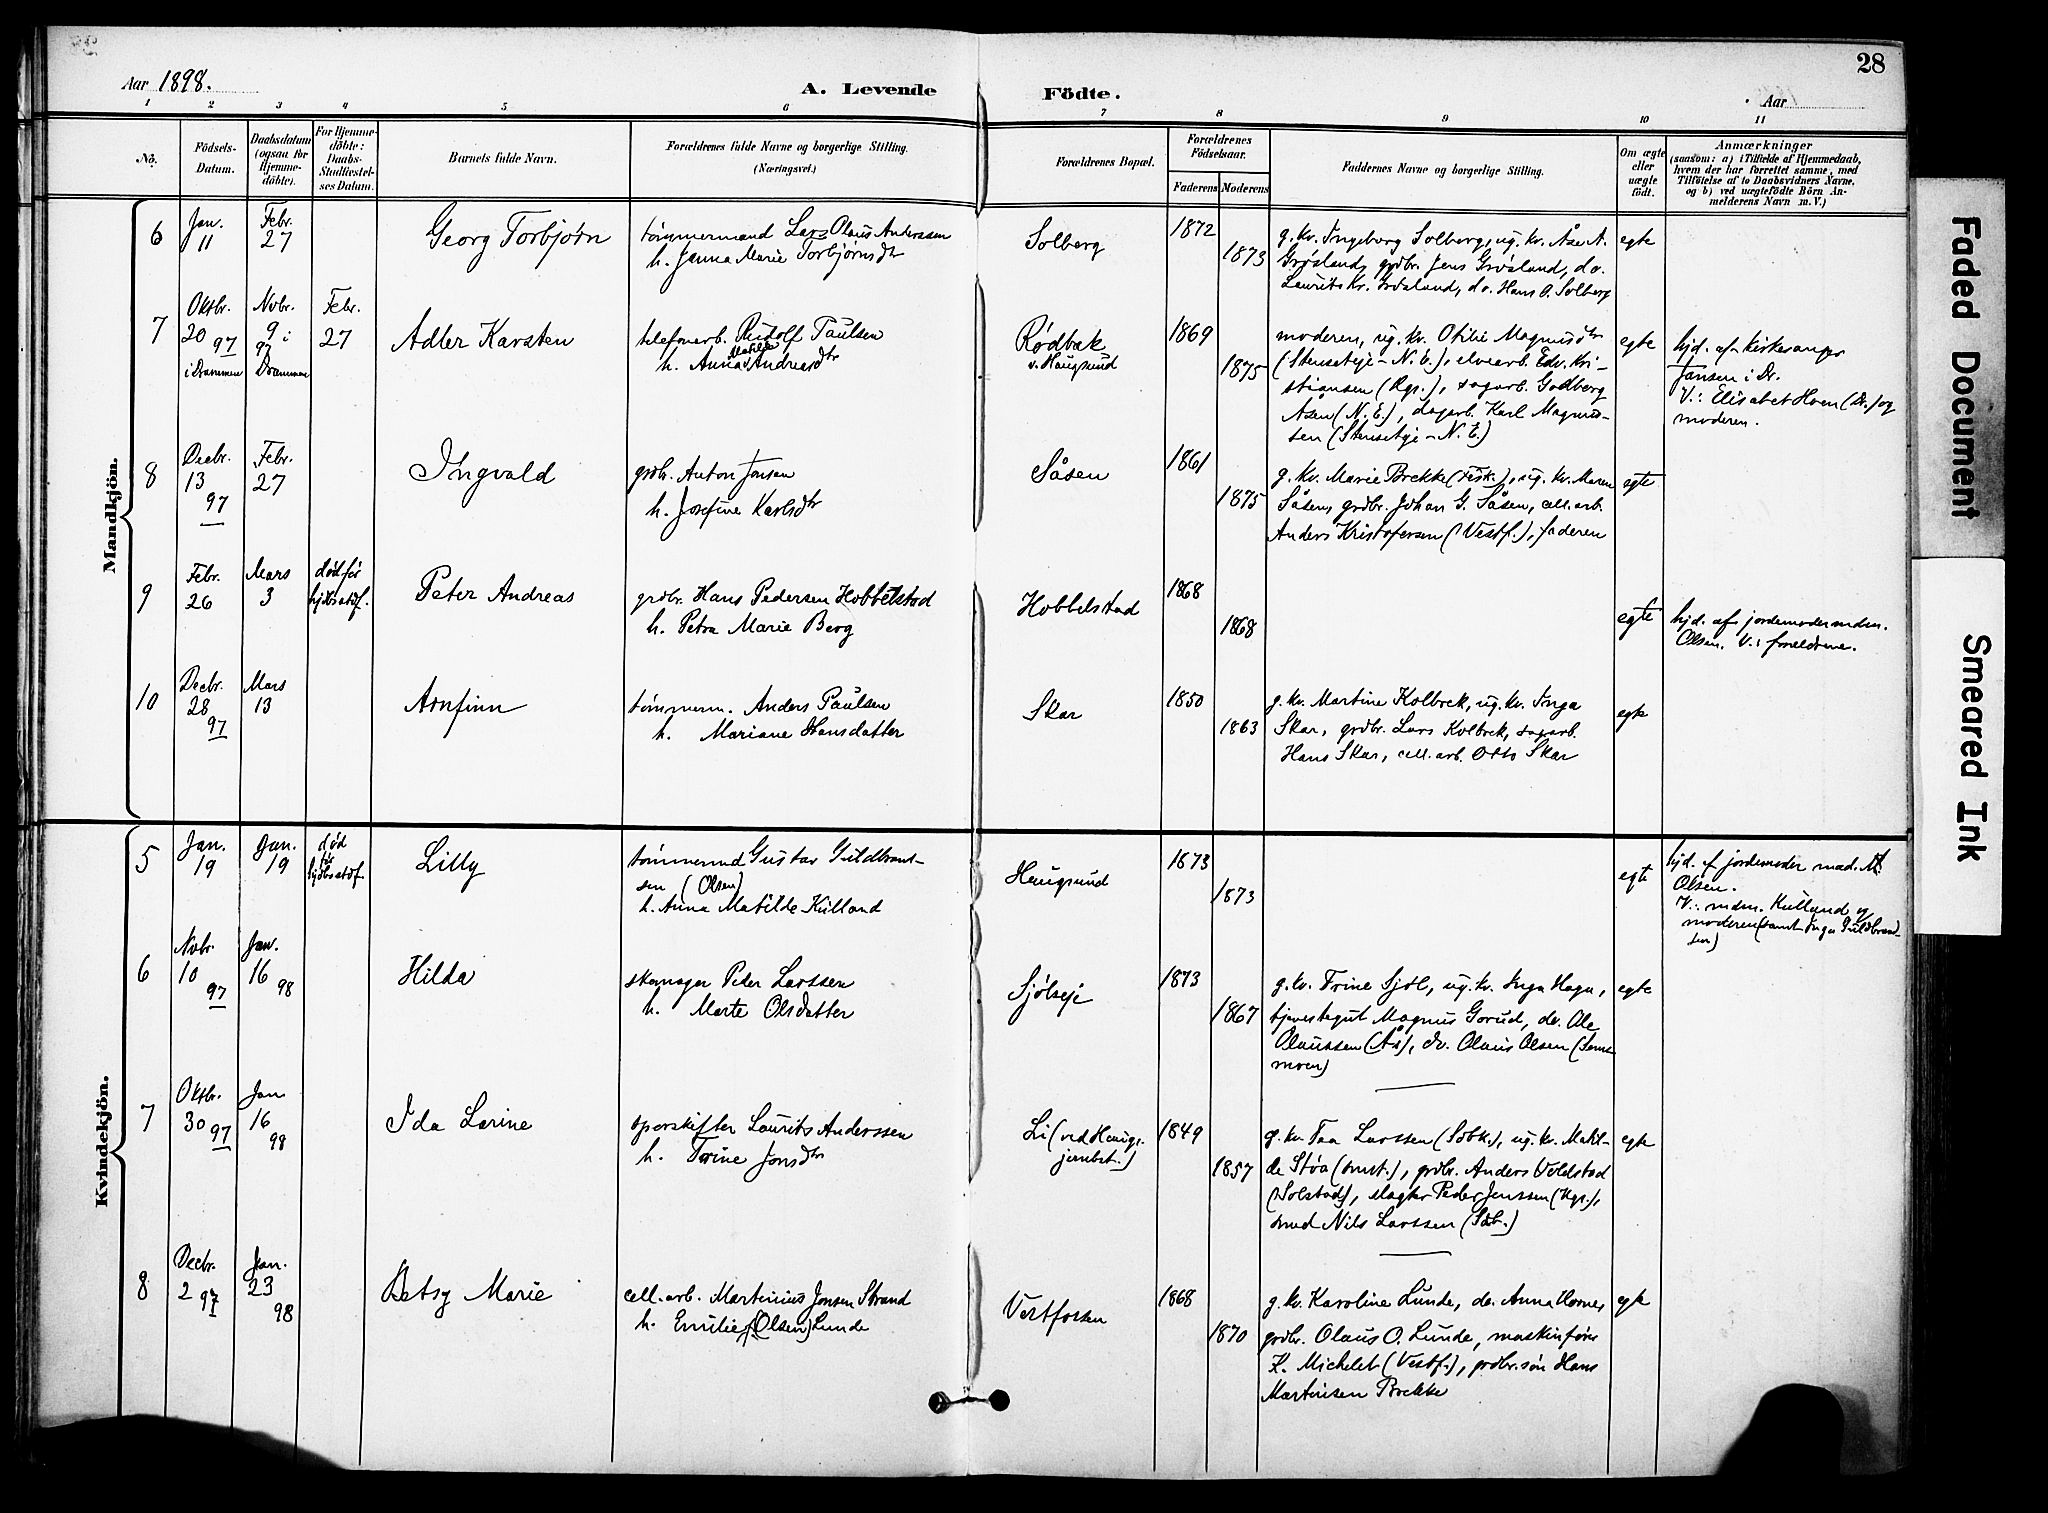 28
Aar 1898.
A. Levende Födte.
Aar
1 2 3 4 5 6 7 8 9 10 11
No.
Födsels-Datum.
Daabsdatum (ogsaa for Hjemme-döbte).
For Hjemme-döbte: Daabs-Stadfæstel-ses Datum.
Barnets fulde Navn.
Forældrenes fulde Navne og borgerlige Stilling. (Næringsvei.)
Forældrenes Bopæl.
Forældrenes Födselsaar.
Faderens Moderens
Faddernes Navne og borgerlige Stilling.
Om ægte eller uægte födt.
Anmærkninger
(saasom: a) i Tilfælde af Hjemmedaab,
hvem der har forrettet samme, med
Tilföielse af to Daabsvidners Navne,
og b) ved uægtefödte Börn An-
melderens Navn m. V.)
Mandkjön.
6
Jan. 11
Febr. 27
Georg Torbjørn
tømmermand Lars Olaus Anderssen
h. Janna Marie Torbjørnsdtr
Solberg
1872
1873
g. kv. Ingeborg Solberg, ug. kv. Åse A.
Grøsland, grdbr. Jens Grøsland, do.
Laurits Kr. Grøsland, do. Hans O. Solberg
egte
7
Oktbr. 20 97 i Drammen
Nvbr. 9 97 i Drammen
Febr. 27
Adler Karsten
telefonarb. Rudolf Paulsen
h. Anna Matilde Andreasdtr
Rødbæk
v. Haugsund
1869
1875
moderen, ug. kv. Otilie Magnusdtr
(Stenseteje - N. E.), elvearb. Edv. Kri-
stiansen (Hgs.), sagarb. Godberg
Åsen (N. E.), dagarb. Karl Magnus-
sen (Stenseteje - N. E.)
egte
hjd. af kirkesanger
Jansen i Dr.
V.: Elisabet Hoen (Dr.) og
moderen.
8
Decbr. 13 97
Febr. 27
Ingvald
grdbr. Anton Jonsen
h. Josefine Karlsdtr
Såsen
1861
1875
g. kv. Marie Brekke (Fisk.), ug. kv. Maren
Såsen, grdbr. Johan G. Såsen, cell. arb.
Anders Kristofersen (Vestf.), faderen
egte
9
Febr. 26
Mars 3
død før hjdbs stdf.
Peter Andreas
grdbr. Hans Pedersen Hobbelstad
h. Petra Marie Berg
Hobbelstad
1868
1868
egte
hjd. af jordemoder mdm.
Olsen. V.: foreldrene.
10
Decbr. 28 97
Mars 13
Arnfinn
tømmerm. Anders Paulsen
h. Mariane Hansdatter
Skar
1850
1863
g. kv. Martine Kolbrek, ug. kv. Inga
Skar, grdbr. Lars Kolbrek, sagarb.
Hans Skar, cell. arb. Otto Skar
egte
Kvindekjön.
5
Jan. 19
Jan. 19
død før hjdbs stdf.
Lilly
tømmermd Gustav Guldbrand-
sen (Olsen)
h. Anna Matilde Kulland
Haugsund
1873
1873
egte
hjd. af jordemoder mad. M.
Olsen.
V.: mdm. Kulland og
moderen (samt Inga Guldbrand-
sen)
6
Nvbr. 10 97
Jan. 16 98
Hilda
skomager Peder Larssen
h. Marte Olsdatter
Sjølseje
1873
1867
g. kv. Trine Sjøl, ug. kv. Inga Haga,
tjenestegut Magnus Gorud, do. Ole
Olaussen (Ås), do. Olaus Olsen (Sems-
moen)
egte
7
Oktbr. 30 97
Jan 16 98
Ida Larine
sporskifter Laurits Anderssen
h. Trine Jonsdtr
Li (ved Haugs.
jernbst.)
1849
1857
g. kv. Tea Larssen (Sdbk.), ug. kv. Matil-
de Støa (smst.), grdbr. Anders Voldstad
(Solstad), slagter Peder Jenssen (Hgs.),
smed Nils Larssen (Sdb.)
egte
8
Decbr. 2 97
Jan. 23 98
Betsy Marie
cell. arb. Martinius Jonsen Strand
h. Emilie (Olsen) Lunde
Vestfossen
1868
1870
g. kv. Karoline Lunde, do. Anna Hornes,
grdbr. Olaus O. Lunde, maskinfører
K. Michelet (Vestf.), grdbr.søn Hans
Martinsen Brekke
egte
Faded Document
Smeared Ink